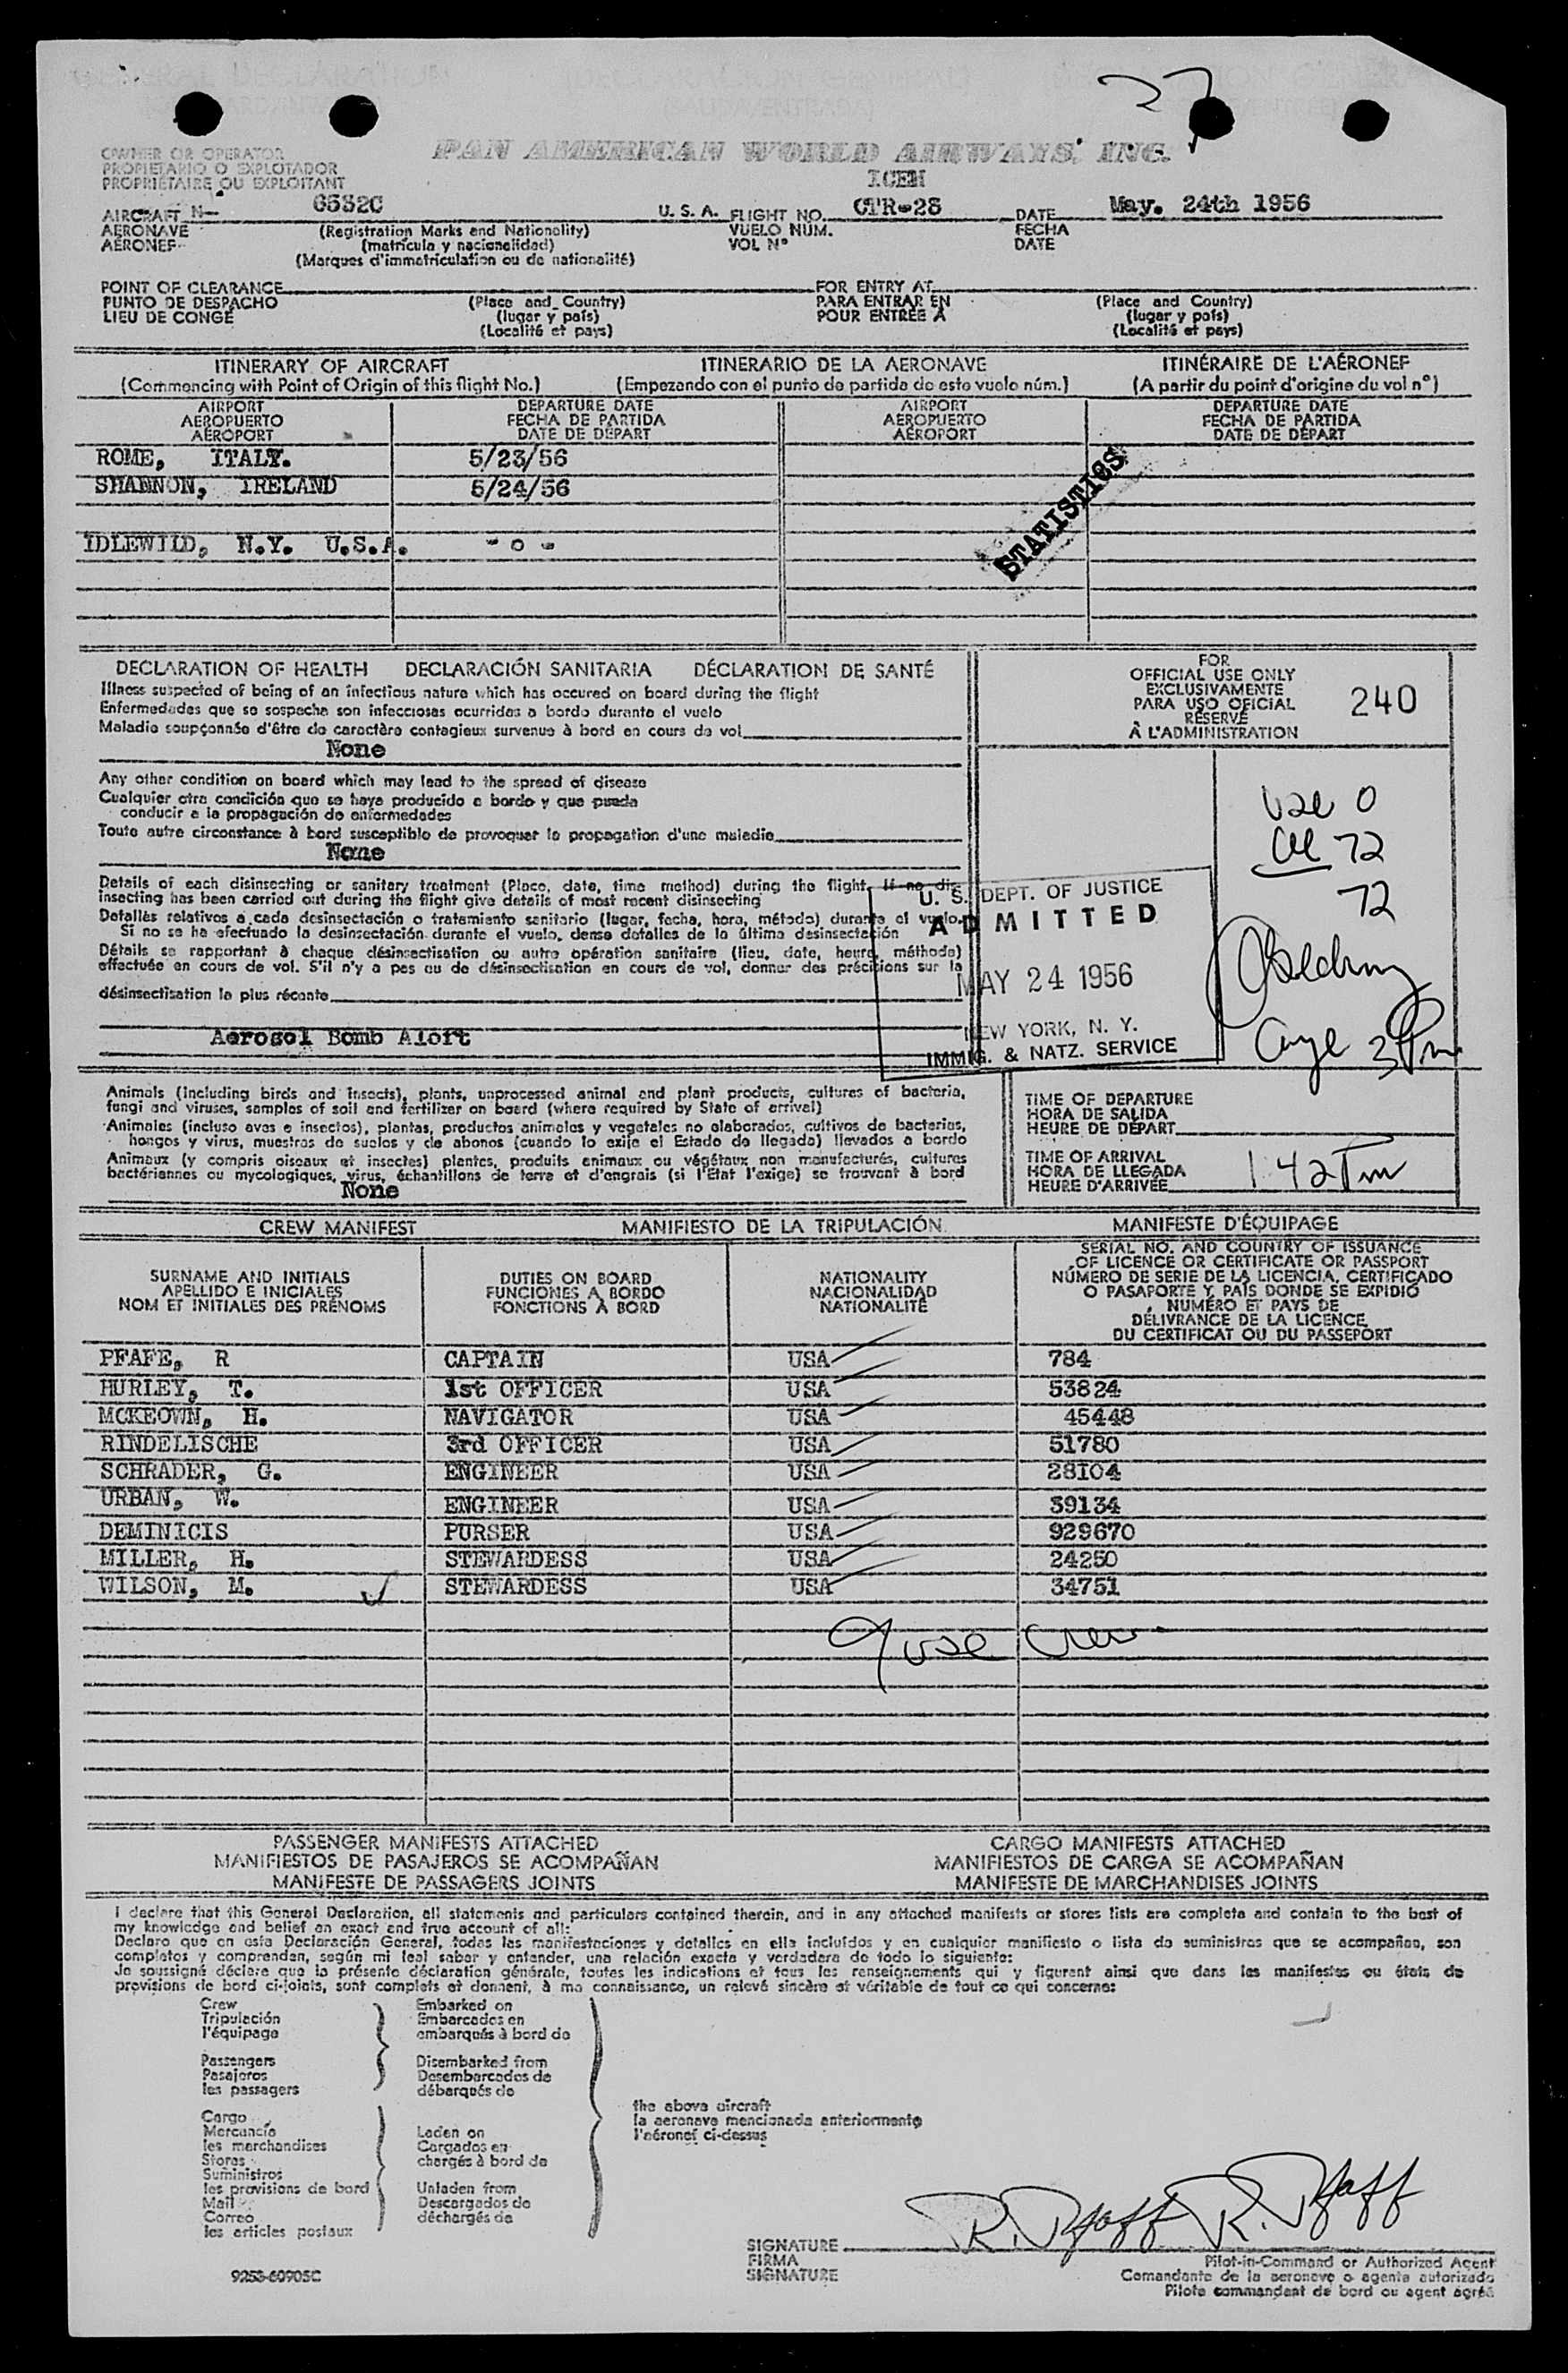 27
OWNER OR OPERATOR
PROPIETARIO O EXPLOTADOR
PROPRIÉTAIRE OU EXPLOITANT
PAN AMERICAN WORLD AIRWAYS, INC.
ICEM
AIRCRAFT N- 6532C U. S. A. FLIGHT NO. CTR-28 DATE May. 24th 1956
AERONAVE (Registration Marks and Nationality) VUELO NUM. FECHA
AÉRONEF (matrícula y nacionalidad) VOL N° DATE
(Marques d'immatriculation ou de nationalité)
POINT OF CLEARANCE FOR ENTRY AT
PUNTO DE DESPACHO (Place and Country) PARA ENTRAR EN (Place and Country)
LIEU DE CONGÉ (lugar y país) POUR ENTRÉE À (lugar y país)
(Localité et pays) (Localité et pays)
ITINERARY OF AIRCRAFT ITINERARIO DE LA AERONAVE ITINÉRAIRE DE L'AÉRONEF
(Commencing with Point of Origin of this flight No.) (Empezando con el punto de partida de este vuelo núm.) (A partir du point d'origine du vol n°)
AIRPORT DEPARTURE DATE AIRPORT DEPARTURE DATE
AEROPUERTO FECHA DE PARTIDA AEROPUERTO FECHA DE PARTIDA
AÉROPORT DATE DE DÉPART AÉROPORT DATE DE DÉPART
ROME, ITALY. 5/23/56
SHANNON, IRELAND 5/24/56
IDLEWILD, N.Y. U.S.A. - o -
STATISTICS
DECLARATION OF HEALTH DECLARACIÓN SANITARIA DÉCLARATION DE SANTÉ
Illness suspected of being of an infectious nature which has occured on board during the flight
Enfermedades que se sospecha son infecciosas ocurridas a bordo durante el vuelo
Maladie soupçonnée d'être de caractère contagieux survenue à bord en cours de vol
None
Any other condition on board which may lead to the spread of disease
Cualquier otra condición que se haya producido a bordo y que pueda
conducir a la propagación de enfermedades
Toute autre circonstance à bord susceptible de provoquer la propagation d'une maladie
None
Details of each disinsecting or sanitary treatment (Place, date, time method) during the flight. If no dis-
insecting has been carried out during the flight give details of most recent disinsecting
Detalles relativos a cada desinsectación o tratamiento sanitario (lugar, fecha, hora, método) durante el vuelo.
Si no se ha efectuado la desinsectación durante el vuelo, dense detalles de la última desinsectación
Détails se rapportant à chaque désinsectisation ou autre opération sanitaire (lieu, date, heure, méthode)
effectuée en cours de vol. S'il n'y a pas eu de désinsectisation en cours de vol, donner des précisions sur la
désinsectisation la plus récente
Aerosol Bomb Aloft
FOR
OFFICIAL USE ONLY
EXCLUSIVAMENTE
PARA USO OFICIAL
RÉSERVÉ
À L'ADMINISTRATION
240
USC 0
72
72
3 Pm
U. S. DEPT. OF JUSTICE
ADMITTED
MAY 24 1956
NEW YORK, N. Y.
IMMIG. & NATZ. SERVICE
Animals (including birds and insects), plants, unprocessed animal and plant products, cultures of bacteria,
fungi and viruses, samples of soil and fertilizer on board (where required by State of arrival)
Animales (incluso aves e insectos), plantas, productos animales y vegetales no elaborados, cultivos de bacterias,
hongos y virus, muestras de suelos y de abonos (cuando lo exija el Estado de llegada) llevados a bordo
Animaux (y compris oiseaux et insectes) plantes, produits animaux ou végétaux non manufacturés, cultures
bactériennes ou mycologiques, virus, échantillons de terre et d'engrais (si l'État l'exige) se trouvant à bord
None
TIME OF DEPARTURE
HORA DE SALIDA
HEURE DE DÉPART
TIME OF ARRIVAL
HORA DE LLEGADA
HEURE D'ARRIVÉE
1 42 Pm
CREW MANIFEST MANIFIESTO DE LA TRIPULACIÓN MANIFESTE D'ÉQUIPAGE
SURNAME AND INITIALS
APELLIDO E INICIALES
NOM ET INITIALES DES PRÉNOMS
DUTIES ON BOARD
FUNCIONES A BORDO
FONCTIONS À BORD
NATIONALITY
NACIONALIDAD
NATIONALITÉ
SERIAL NO. AND COUNTRY OF ISSUANCE
OF LICENCE OR CERTIFICATE OR PASSPORT
NÚMERO DE SERIE DE LA LICENCIA, CERTIFICADO
O PASAPORTE Y PAÍS DONDE SE EXPIDIÓ
NUMÉRO ET PAYS DE
DÉLIVRANCE DE LA LICENCE
DU CERTIFICAT OU DU PASSEPORT
PFAFE, R CAPTAIN USA 784
HURLEY, T. 1st OFFICER USA 53824
MCKEOWN, H. NAVIGATOR USA 45448
RINDELISCHE 3rd OFFICER USA 51780
SCHRADER, G. ENGINEER USA 28104
URBAN, W. ENGINEER USA 39134
DEMINICIS PURSER USA 929670
MILLER, H. STEWARDESS USA 24250
WILSON, M. STEWARDESS USA 34751
9 USC Crew
PASSENGER MANIFESTS ATTACHED CARGO MANIFESTS ATTACHED
MANIFIESTOS DE PASAJEROS SE ACOMPAÑAN MANIFIESTOS DE CARGA SE ACOMPAÑAN
MANIFESTE DE PASSAGERS JOINTS MANIFESTE DE MARCHANDISES JOINTS
I declare that this General Declaration, all statements and particulars contained therein, and in any attached manifests or stores lists are complete and contain to the best of
my knowledge and belief an exact and true account of all:
Declaro que en esta Declaración General, todas las manifestaciones y detalles en ella incluídos y en cualquier manifiesto o lista de suministros que se acompañan, son
completos y comprenden, según mi leal saber y entender, una relación exacta y verdadera de todo lo siguiente:
Je soussigné déclare que la présente déclaration générale, toutes les indications et tous les renseignements qui y figurent ainsi que dans les manifestes ou états de
provisions de bord ci-joints, sont complets et donnent, à ma connaissance, un relevé sincère et véritable de tout ce qui concerne:
Crew
Tripulación
l'équipage
Passengers
Pasajeros
les passagers
Cargo
Mercancía
les marchandises
Stores
Suministros
les provisions de bord
Mail
Correo
les articles postaux
Embarked on
Embarcados en
embarqués à bord de
Disembarked from
Desembarcados de
débarqués de
Laden on
Cargados en
chargés à bord de
Unladen from
Descargados de
déchargés de
the above aircraft
la aeronave mencionada anteriormente
l'aéronef ci-dessus
SIGNATURE R. Pfaff R. Pfaff
FIRMA
SIGNATURE
Pilot-in-Command or Authorized Agent
Comandante de la aeronave o agente autorizado
Pilote commandant de bord ou agent agréé
9253-60905C